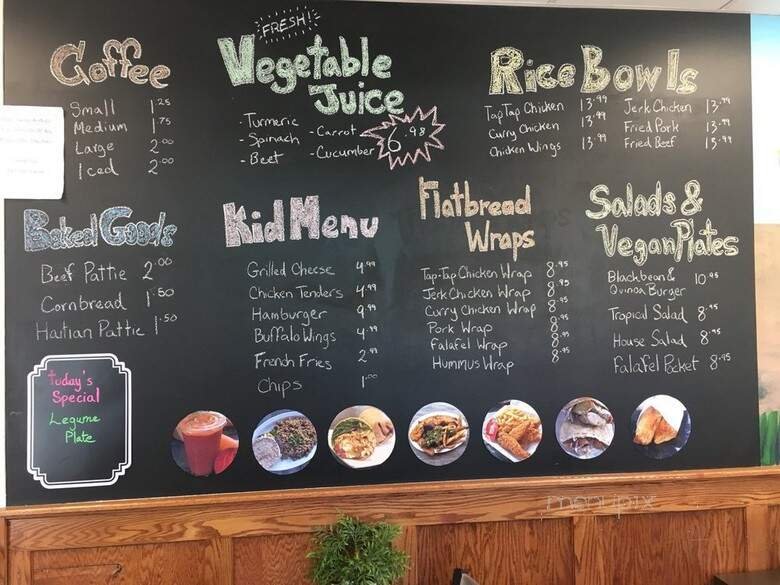 Coffee
Small 1.25
Medium 1.75
Large 2.00
Iced 2.00
FRESH!
Vegetable
Juice
- Turmeric
- Spinach
- Beet
- Carrot
- Cucumber
6.98
Rice Bowls
Tap Tap Chicken 13.99
Curry Chicken 13.99
Chicken Wings 13.99
Jerk Chicken 13.99
Fried Pork 13.99
Fried Beef 13.99
Baked Goods
Beef Pattie 2.00
Cornbread 1.50
Haitian Pattie 1.50
Kid Menu
Grilled Cheese 4.99
Chicken Tenders 4.99
Hamburger 9.99
Buffalo Wings 4.99
French Fries 2.99
Chips 1.00
Flatbread
Wraps
Tap-Tap Chicken Wrap 8.95
Jerk Chicken Wrap 8.95
Curry Chicken Wrap 8.95
Pork Wrap 8.95
Falafel Wrap 8.95
Hummus Wrap 8.95
Salads &
Vegan Plates
Blackbean &
Quinoa Burger 10.95
Tropical Salad 8.95
House Salad 8.95
Falafel Pocket 8.95
Today's
Special
Legume
Plate
menupix